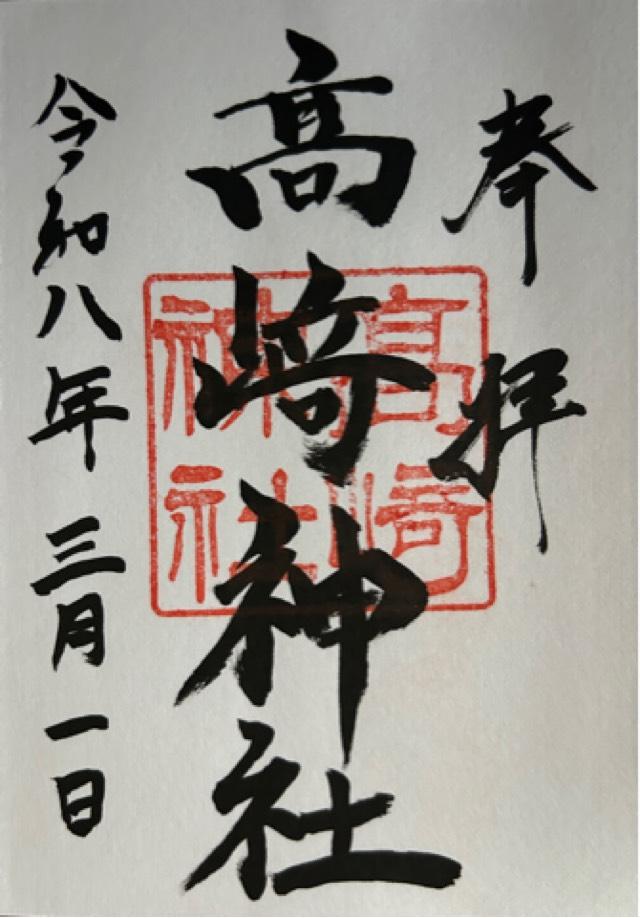 奉拝
高崎神社
高崎
神社
令和八年三月一日